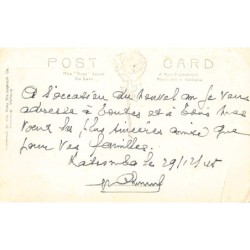 POST CARD
A l'occasion du nouvel an je vous
adresse à toutes et à tous mes
voeux les plus sincères ainsi que
pour vos familles.
Katoomba le 29/12/